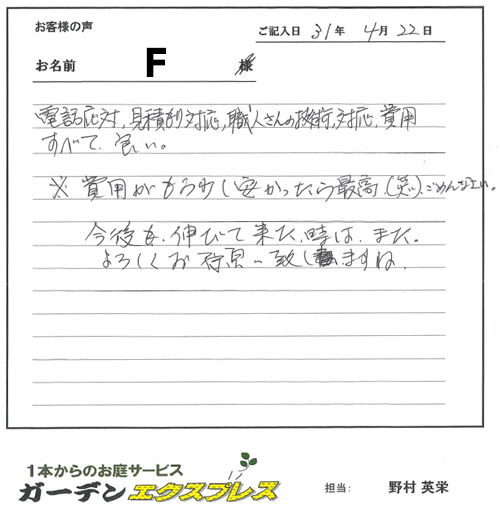 お客様の声
ご記入日 31年 4月 22日
お名前 F 様
電話応対、見積り対応、職人さんの技術、対応、費用
すべて、良い。
※費用がもう少し安かったら最高。(笑)、ごめんなさい。
今後も、伸びて来た時は、また、
よろしくお願い致しますね。
1本からのお庭サービス
ガーデンエクスプレス
担当: 野村 英栄